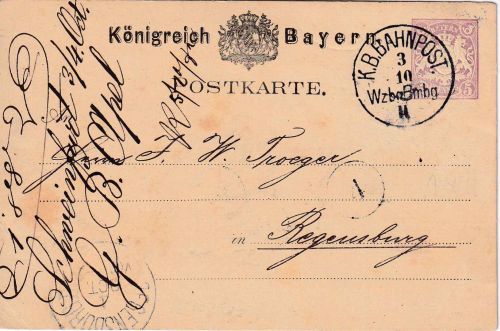 Königreich Bayern.
POSTKARTE.
K.B.BAHNPOST
3
10
Wzbg Bmbg
II
5
Herrn F. W. Troeger
1
in Regensburg
Schweinfurt 3/4. Oct.
G. B. Ypel
REGENSBURG